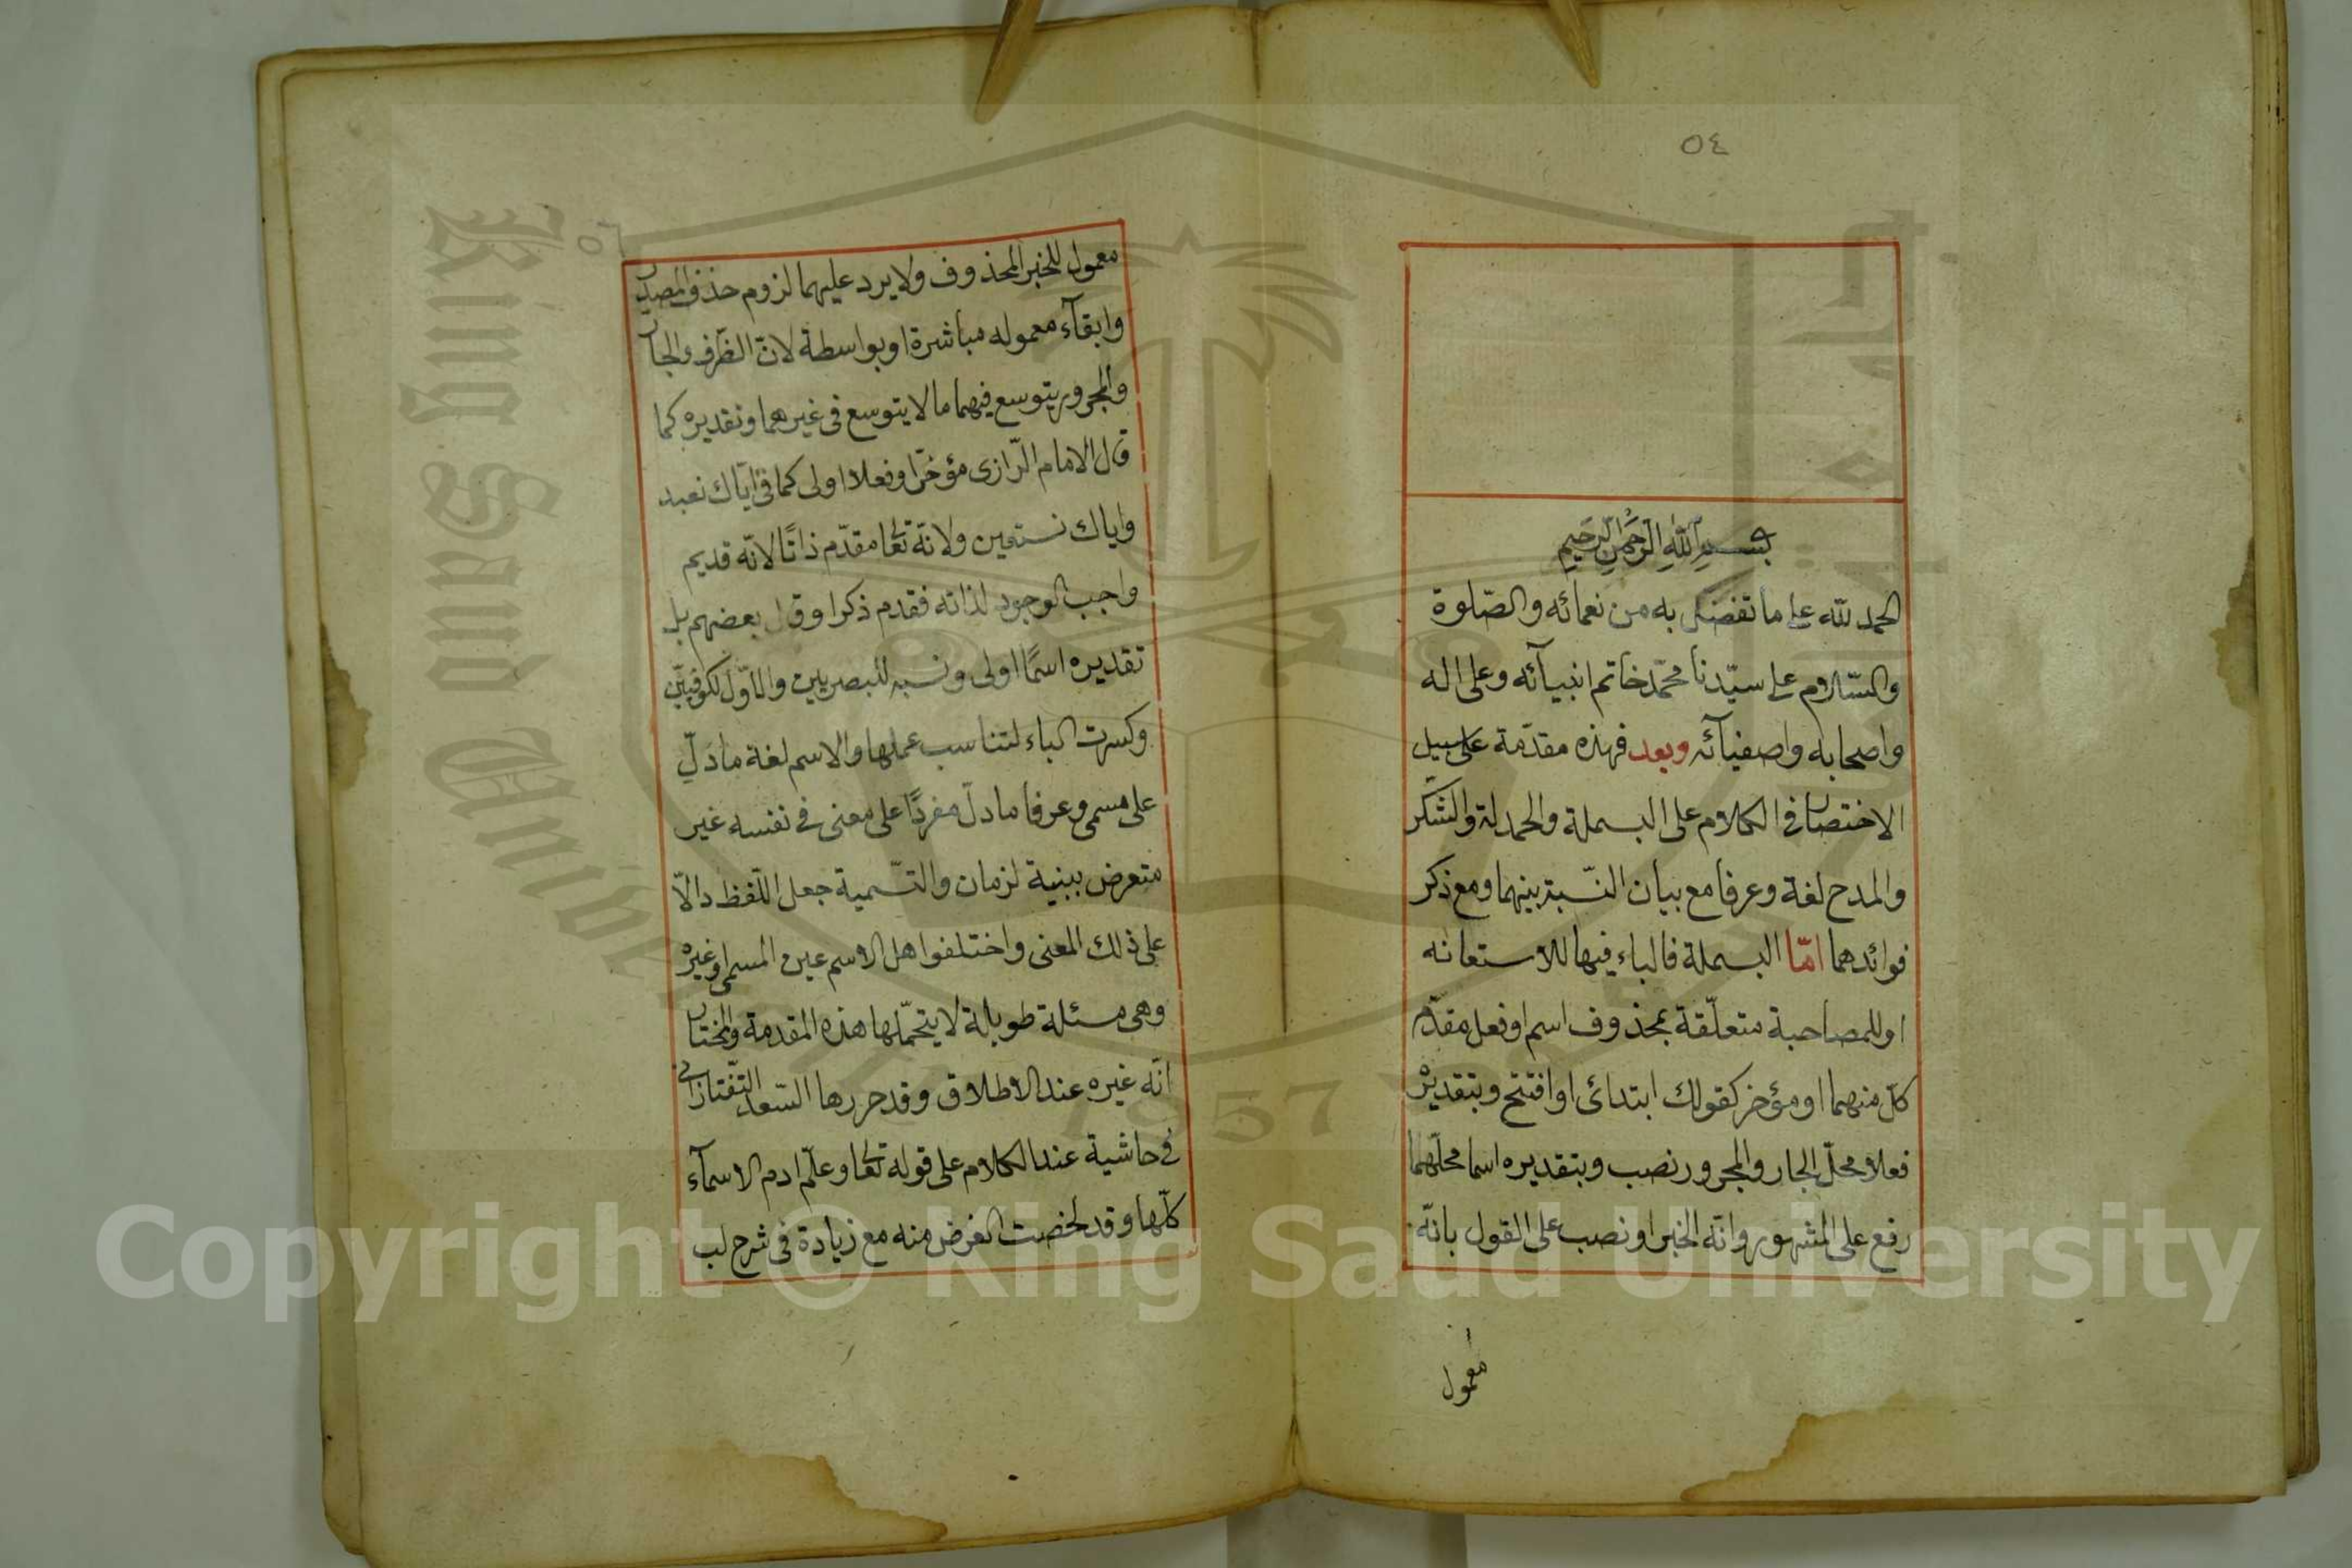 ٥٤
بسم الله الرحمن الرحيم
الحمد لله على ما تفضل به من نعمائه والصّلوة
والسّلام على سيّدنا محمّد خاتم انبيآئه وعلى اله
واصحابه واصفيآئه وبعد فهذه مقدّمة على سبيل
الاختصار في الكلام على البسملة والحمدلة والشّكر
والمدح لغة وعرفا مع بيان النّسبة بينهما ومع ذكر
فوائدهما امّا البسملة فالباء فيها للاستعانه
او للمصاحبة متعلّقة بمحذوف اسم او فعل مقدّم
كلّ منهما او مؤخر كقولك ابتدائى او افتتح وبتقديره
فعلا محلّ الجار والمجرور نصب وبتقديره اسما محلّهما
رفع على المشهور وانّه الخبر او نصب على القول بانّه
معمول
٥٦
معمول للخبر المحذوف ولا يرد عليهما لزوم حذف المصدر
وابقآء معموله مباشرة او بواسطة لانّ الظّرف والجار
والمجرور يتوسع فيهما ما لا يتوسع فى غيرهما وتقديره كما
قال الامام الرّازى مؤخّرا وفعلا اولى كما فى ايّاك نعبد
واياك نستعين ولانّه تعا مقدّم ذاتًا لانّه قديم
واجب الوجود لذاته فقدم ذكرا وقال بعضهم بل
تقديره اسمًا اولى ونسبه للبصريين والاوّل لكوفيّين
وكسرت الباء لتناسب عملها والاسم لغة ما دلّ
على مسمى وعرفا ما دلّ مفردًا على معنى فى نفسه غير
متعرض ببنية لزمان والتّسمية جعل اللّفظ دالّا
على ذلك المعنى واختلفوا هل الاسم عين المسمى او غيره
وهى مسئلة طويلة لا يتحمّلها هذه المقدمة والمختار
انّه غيره عند الاطلاق وقد حررها السّعد التّفتازانى
فى حاشية عند الكلام على قوله تعا وعلّم ادم الاسمآء
كلّها وقد لخصت الغرض منه مع زيادة فى شرح لب
King Saud
1957
Copyright © King Saud University